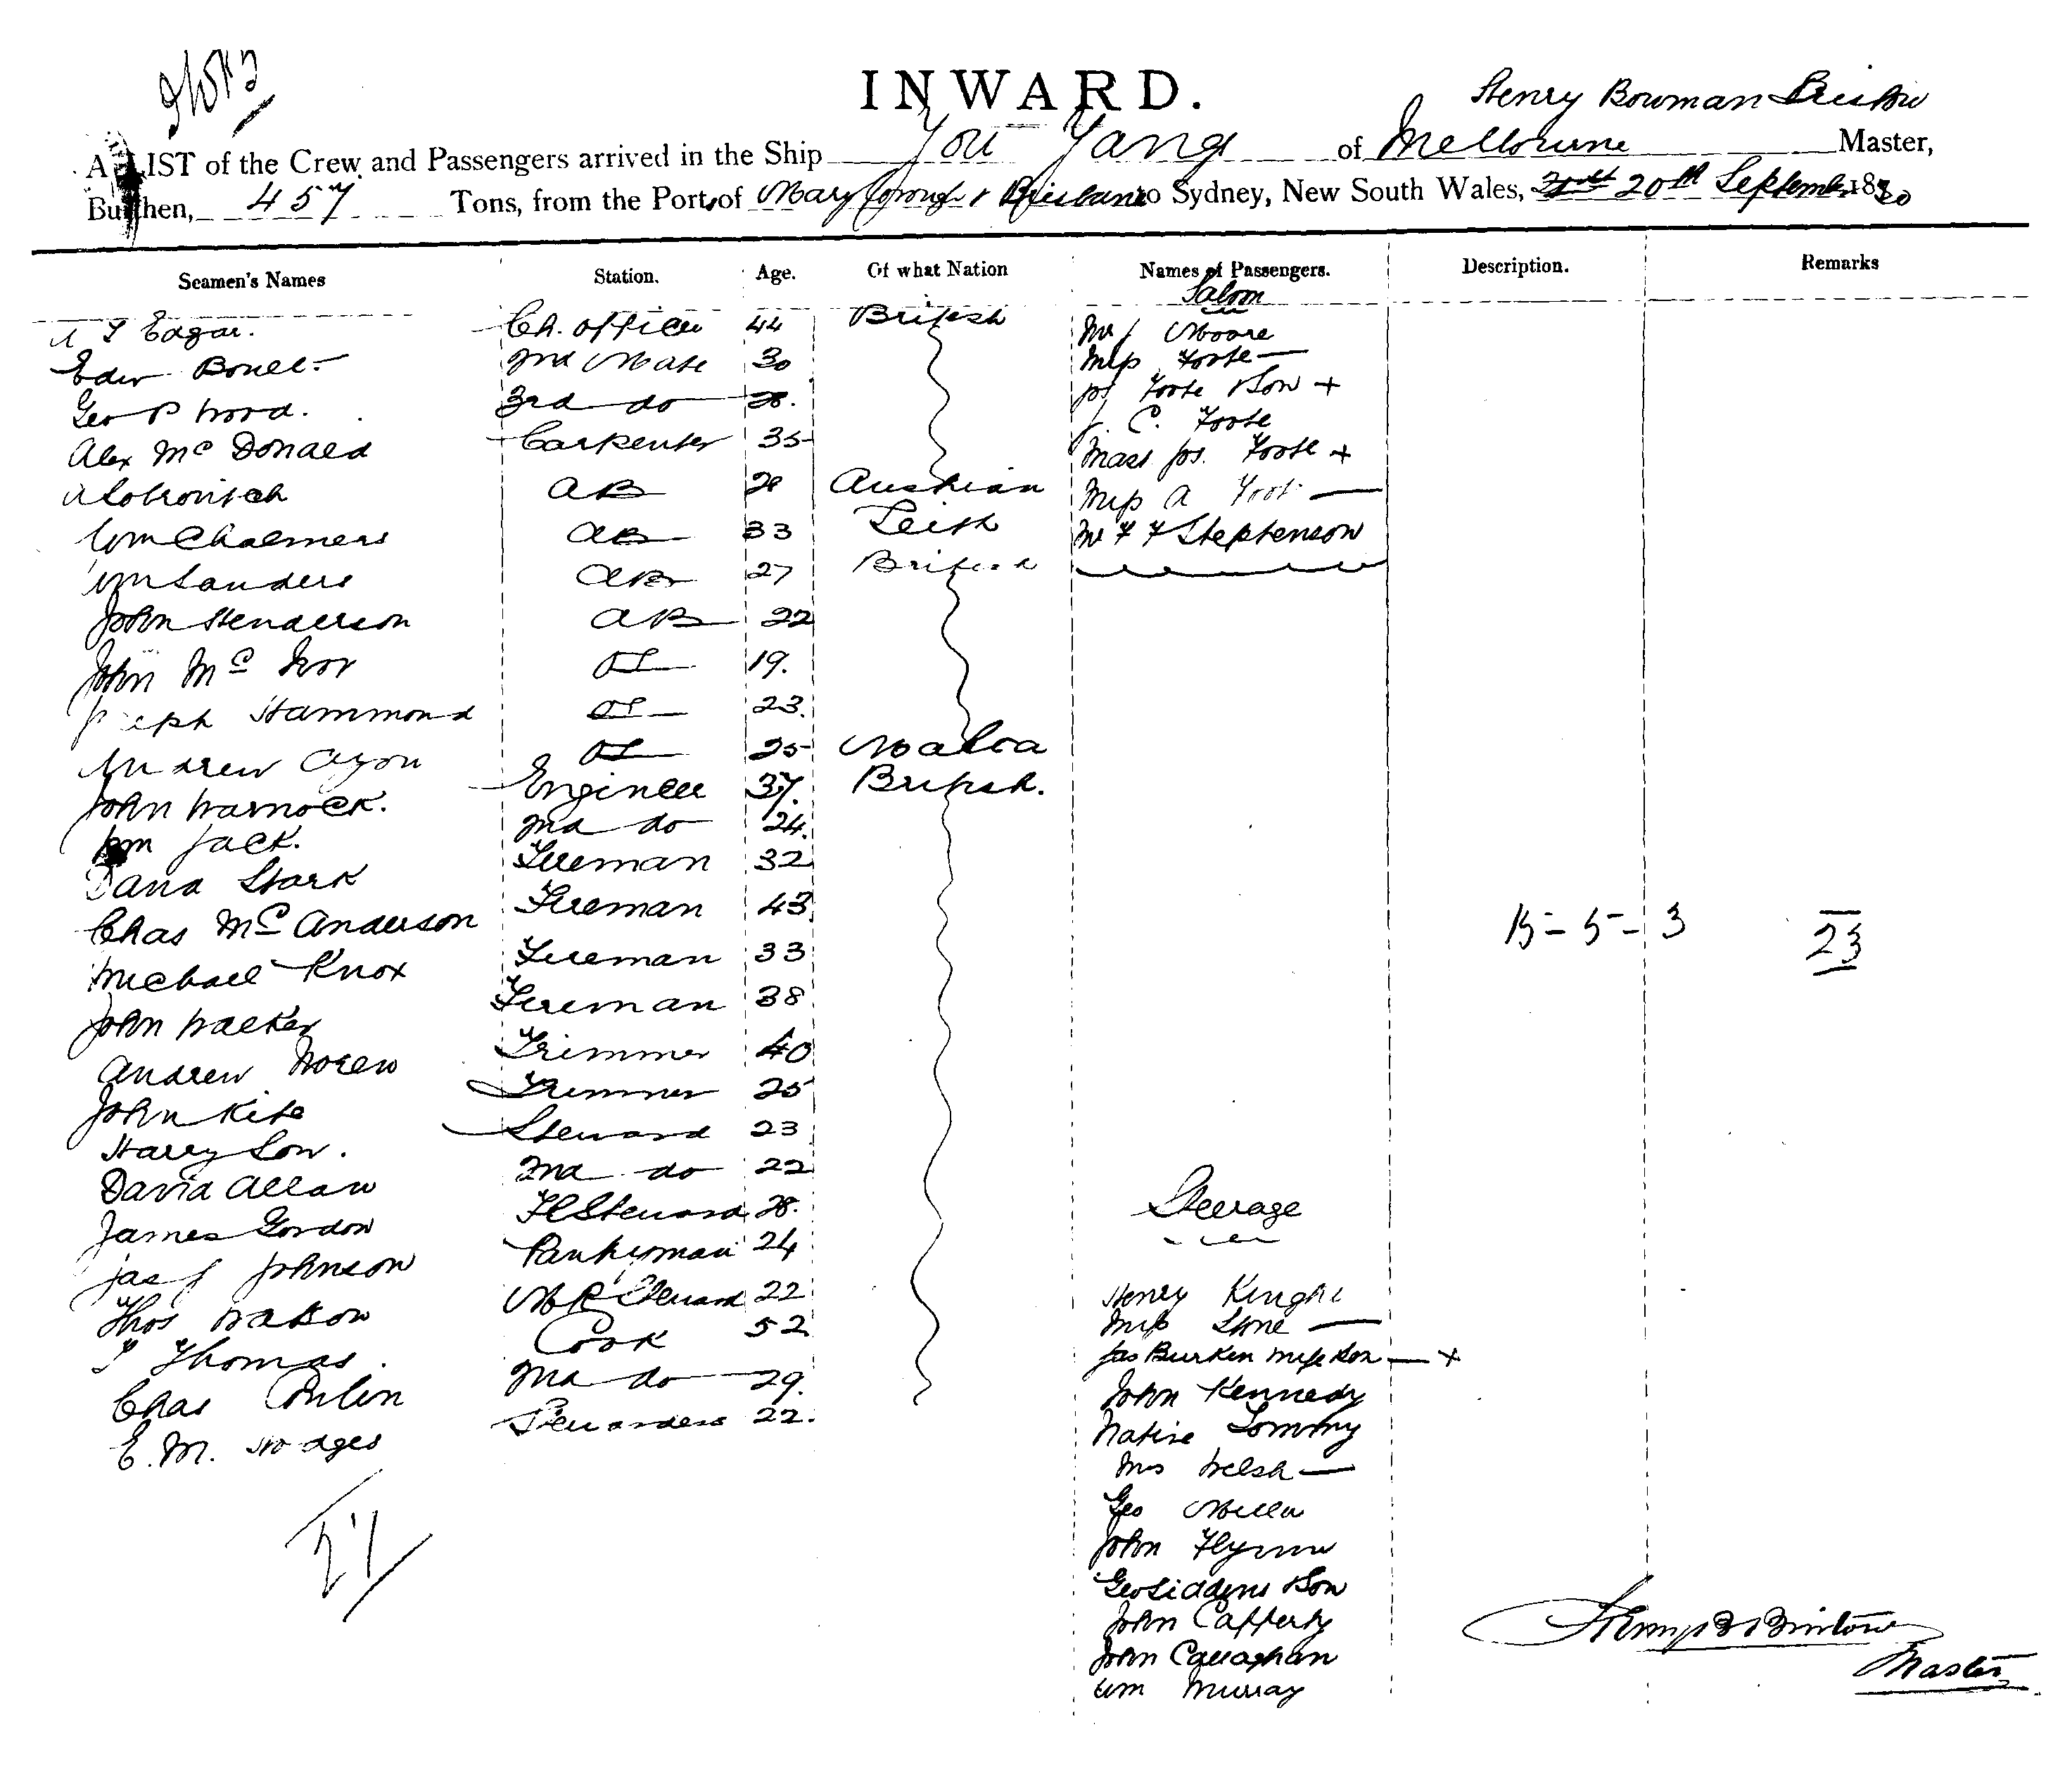 INWARD.
Henry Bowman Bristow
A LIST of the Crew and Passengers arrived in the Ship You Yangs of Melbourne Master,
Burthen, 457 Tons, from the Ports of Maryborough & Brisbane to Sydney, New South Wales, 20th September 1880
Seamen's Names Station. Age. Of what Nation Names of Passengers. Description. Remarks
Saloon
Edgar. Ch. officer 44 British Mr J Moore
Edw 2nd Mate 30 Miss Foote —
Geo P Wood. 3rd do 28. Jos Foote & Son +
Alex McDonald Carpenter 35 J. C. Foote
Mast Jos. Foote +
AB 28 Austrian Miss A Foote —
Wm Chalmers AB 33 Leith Mr F F Stephenson
Wm Sanders AB 27 British
John Henderson AB 22
John Mc OS 19.
Joseph Hammond OS 23.
Andrew OS 25 Malta
John Warnock. Engineer 37. British.
Wm Jack. 2nd do 24.
David Stark Fireman 32
Chas McAnderson Fireman 43
15 - 5 - 3 23
Michael Knox Fireman 33
John Walker Fireman 38
Andrew Trimmer 40
John Kite Trimmer 25
Harry Low. Steward 23
David Allan 2nd do 22
James Gordon FC Steward 28.
Steerage
Jas J Johnson Pantryman 24
Thos Watson MR Steward 22 Henry Knight
Thomas. Cook 52 Miss Stone —
Jas Burken wife & son — +
Chas Conlon 2nd do 29. John Kennedy
E. M. Hodges Stewardess 22. Native Tommy
Mrs Welsh —
Geo Miller
27
John Flynn
Geo Siddens & Son
John Cafferty
Henry B Bristow
John Callaghan
Master
Wm Murray